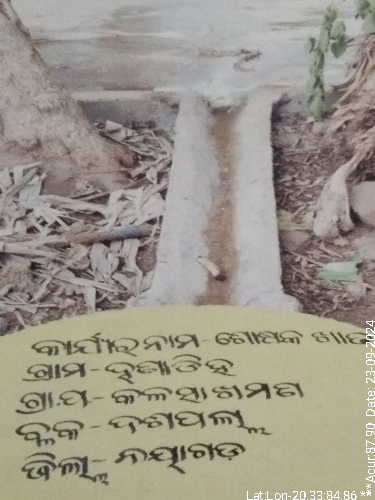 କାର୍ଯ୍ୟର ନାମ - ଶୋଷକ ଖାତ
ଗ୍ରାମ -
ଗ୍ରା.ପ - କଳସାଖମଣ
ବ୍ଲକ - ଦଶପଲ୍ଲା
ଜିଲ୍ଲା - ନୟାଗଡ଼
Lat:Lon-20.33:84.86
***Acur:87.90, Date: 23-09-2024